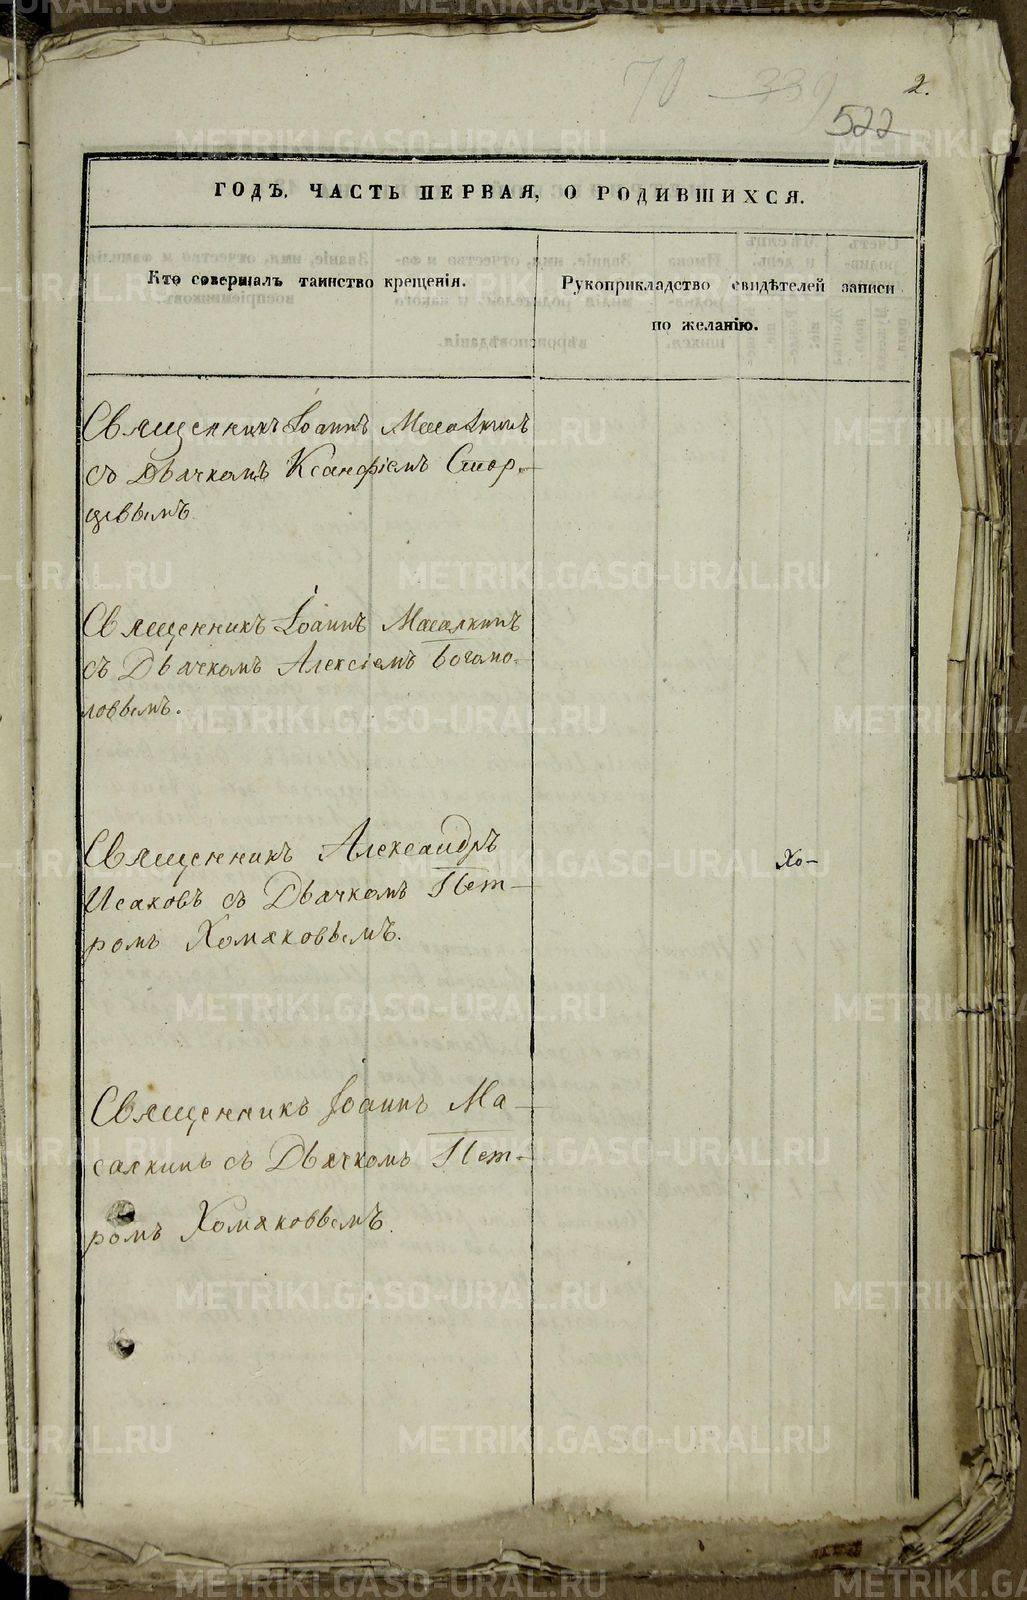 2.
70 339
522
ГОДЪ. ЧАСТЬ ПЕРВАЯ, О РОДИВШИХСЯ.
Кто совершалъ таинство крещенія.
Рукоприкладство свидѣтелей записи
по желанію.
Священникъ Іоаннъ Масалкинъ
съ Дьячкомъ Ксанфіемъ Стар-
цевымъ
Священникъ Іоаннъ Масалкинъ
съ Дьячкомъ Алексіемъ Богомо-
ловымъ.
Священникъ Александръ
Исаковъ съ Дьячкомъ Пет-
ромъ Хомяковымъ.
Хо-
Священникъ Іоаннъ Ма-
салкинъ съ Дьячкомъ Пет-
ромъ Хомяковымъ.
METRIKI.GASO-URAL.RU